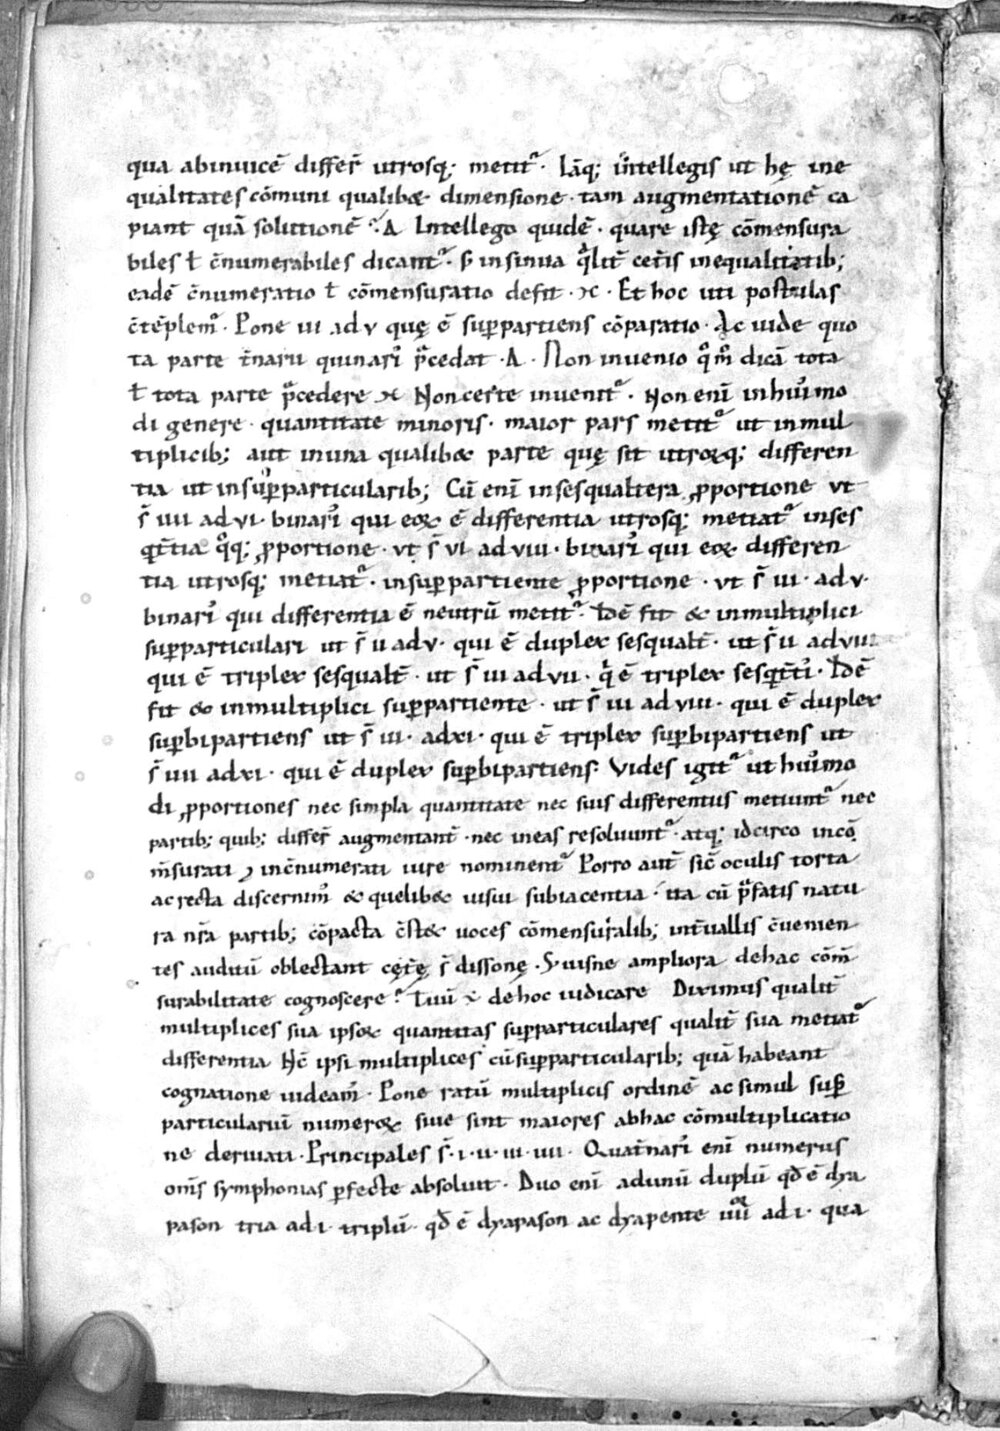 qua abinuicē differt̄ utrosq; metit᷑. Iāq; intellegis ut hę ine
qualitates cōmuni qualib& dimensione · tam augmentationē ca
piant quā solutionē? Δ Intellego quidē · quare istę cōmensura
biles ł c̄numerabiles dicant᷑. s; insinua q̄lit̄ cet̄is inequalitatib;
eadē c̄numeratio ł cōmensuratio desit · ϰ · Et hoc uti postulas
c̄tēplem᷒. Pone iii ad v quę ē sup̄partiens cōparatio · Ac uide quo
ta parte t̄narii quinari᷒ p̄cedat · Δ · Non inuenio q̊m̊ dicā tota
ł tota parte p̄cedere ϰ Non certe inuenit᷑. Non eni̅ in hui᷒mo
di genere · quantitate minoris · maior pars metit᷑ ut in mul
tiplicib; aut in una qualib& parte quę sit utroꝝq; differen
tia ut in sup̄particularib; Cū eni̅ in sesqualtera ꝓportione ut
s̄ iiii ad vi · binari᷒ qui eoꝝ ē differentia utrosq; metiat᷑ in ses
q̄t̄tia q̊q; ꝓportione · ut s̄ vi ad viii · binari᷒ qui eoꝝ differen
tia utrosq; metiat᷑ · in sup̄partiente ꝓportione · ut s̄ iii · ad v ·
binari᷒ qui differentia ē neutrū metit᷑. Idē fit & in multiplici
sup̄particulari ut s̄ ii ad v · qui ē duplex sesqualt̄ · ut s̄ ii ad vii
qui ē triplex sesqualt̄ · ut s̄ iii ad vii · q̇ ē triplex sesq̄t̄ti᷒. Idē
fit & in multiplici sup̄partiente · ut s̄ iii ad viii · qui ē duplex
sup̄bipartiens ut s̄ iii · ad xi · qui ē triplex sup̄bipartiens ut
s̄ iiii ad xi · qui ē duplex sup̄bipartiens. Vides igit᷑ ut hui᷒mo
di ꝓportiones nec simpla quantitate nec suis differentiis metiunt᷑ nec
partib; quib; differt̄ augmentant̄ · nec in eas resoluunt᷑ · atq; idcirco incō
m̄surati ⁊ inc̄numerati iure nominent᷑ Porro aut̄ sic̄ oculis torta
ac recta discernim᷒ & quelib& uisui subiacentia · ita cū p̄fatis natu
ra nr̄a partib; cōpacta c̄st& uoces cōmensurалib; int̄uallis c̄uenien
tes auditū oblectant cęt̄ę s̄ dissonę · Vuisne ampliora de hac cōm̄
surabilitate cognoscere? Tuū ē de hoc iudicare Diximus qualit̄
multiplices sua ipsoꝝ quantitas sup̄particulares qualit̄ sua metiat᷑
differentia Nc̄ ipsi multiplices cū sup̄particularib; quā habeant
cognatione uideam᷒. Pone ratū multiplicis ordinē ac simul sup̄
particulariū numeroꝝ siue sint maiores ab hac cōmultiplicatio
ne deriuati · Principales s̄ · i · ii · iii · iiii · Quat̄nari᷒ eni̅ numerus
om̄s symphonias p̄fecte absoluit · Duo eni̅ ad unū duplū qđ ē dya
pason tria ad i · triplū · qđ ē dyapason ac dyapente iiii᷒ ad i · qua